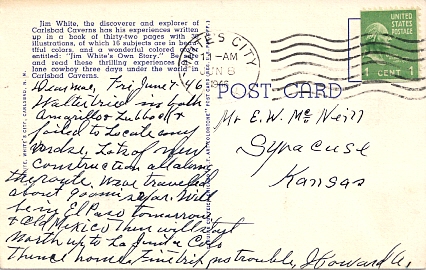 Jim White, the discoverer and explorer of
Carlsbad Caverns has his experiences written
up in a book of thirty-two pages with
illustrations, of which 16 subjects are in beau-
tiful colors, and a wonderful colored
entitled: "Jim White's Own Story."
and read these thrilling experiences
lone cowboy three days under the world in
Carlsbad Caverns.
WHITE'S CITY
AM
JUN 8
UNITED STATES
POSTAGE
1 CENT 1
POST CARD
Fri June 7-46
Walter tried
Amarillo Lubbock &
failed to Locate any
work. Lots of new
construction all along
the route. Have traveled
about 900 mi so far. Will
be in El Paso tomorrow
& Old Mexico then will start
North up to La Junta Colo
thence home. Fine trip no trouble. J Howard
Mr E. W. McNeill
Syracuse
Kansas